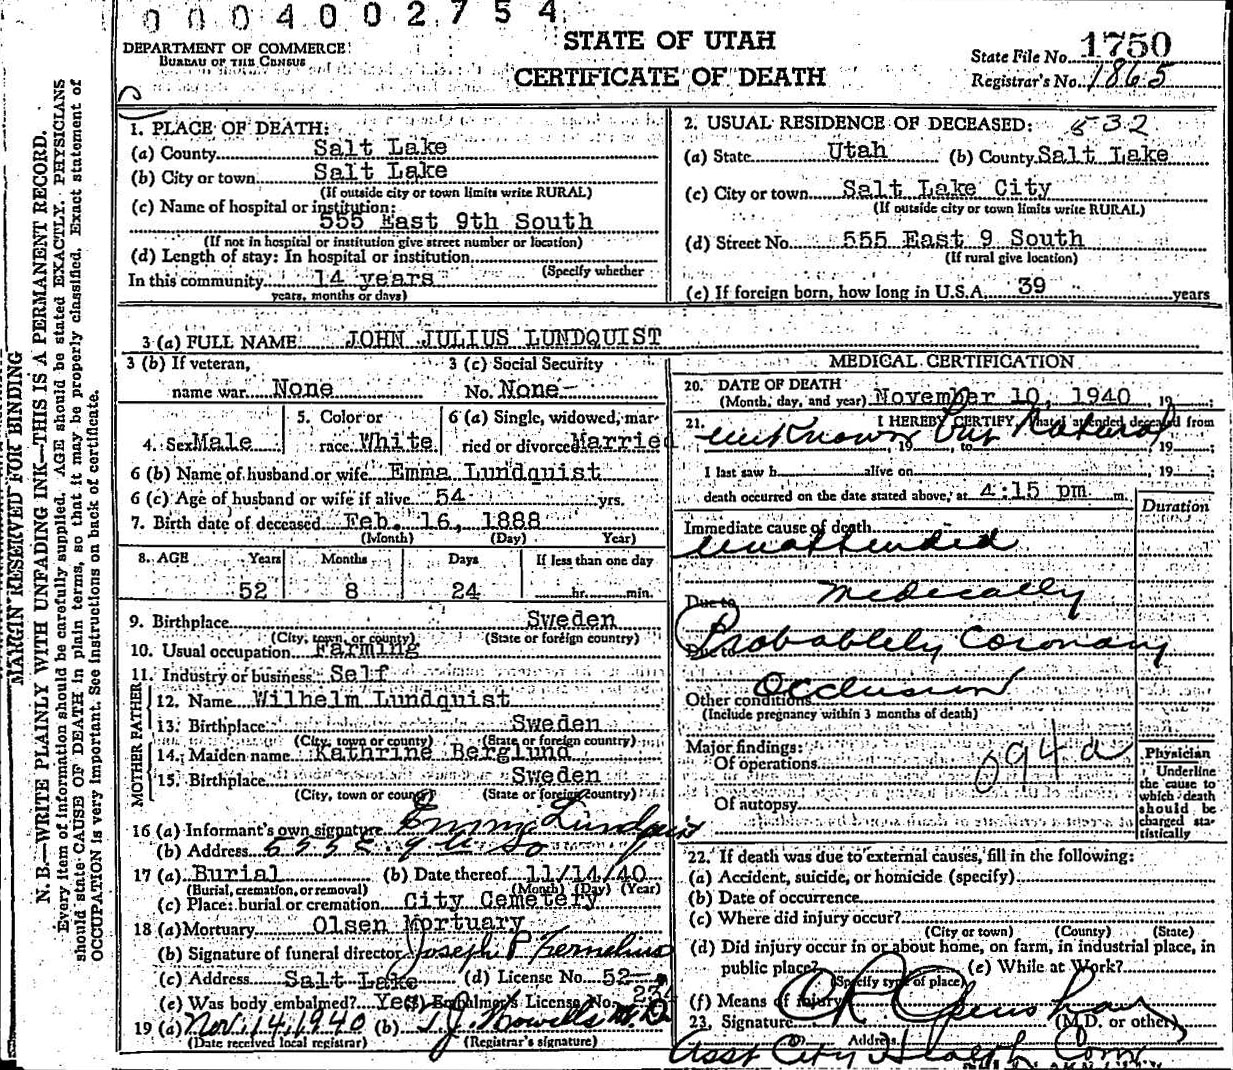 0004002754
DEPARTMENT OF COMMERCE
BUREAU OF THE CENSUS
STATE OF UTAH
CERTIFICATE OF DEATH
State File No. 1750
Registrar's No. 1865
MARGIN RESERVED FOR BINDING
N. B.—WRITE PLAINLY WITH UNFADING INK—THIS IS A PERMANENT RECORD.
Every item of information should be carefully supplied. AGE should be stated EXACTLY. PHYSICIANS
should state CAUSE OF DEATH in plain terms, so that it may be properly classified. Exact statement of
OCCUPATION is very important. See instructions on back of certificate.
1. PLACE OF DEATH:
(a) County Salt Lake
(b) City or town Salt Lake
(If outside city or town limits write RURAL)
(c) Name of hospital or institution:
555 East 9th South
(If not in hospital or institution give street number or location)
(d) Length of stay: In hospital or institution
(Specify whether
In this community 14 years
years, months or days)
2. USUAL RESIDENCE OF DECEASED: 532
(a) State Utah (b) County Salt Lake
(c) City or town Salt Lake City
(If outside city or town limits write RURAL)
(d) Street No. 555 East 9 South
(If rural give location)
(e) If foreign born, how long in U.S.A. 39 years
3 (a) FULL NAME JOHN JULIUS LUNDQUIST
3 (b) If veteran, 3 (c) Social Security
name war None No. None
4. Sex Male 5. Color or race White 6 (a) Single, widowed, married or divorced Married
6 (b) Name of husband or wife Emma Lundquist
6 (c) Age of husband or wife if alive 54 yrs.
7. Birth date of deceased Feb. 16, 1888
(Month) (Day) Year)
8. AGE Years Months Days If less than one day
52 8 24 hr. min.
9. Birthplace Sweden
(City, town, or county) (State or foreign country)
10. Usual occupation Farming
11. Industry or business Self
FATHER
12. Name Wilhelm Lundquist
13. Birthplace Sweden
(City, town or county) (State or foreign country)
MOTHER
14. Maiden name Kathrine Berglund
15. Birthplace Sweden
(City, town or county) (State or foreign country)
16 (a) Informant's own signature Emma Lundquist
(b) Address 555 E. 9th So
17 (a) Burial (b) Date thereof 11/14/40
(Burial, cremation, or removal) (Month) (Day) (Year)
(c) Place: burial or cremation City Cemetery
18 (a) Mortuary Olsen Mortuary
(b) Signature of funeral director Joseph P
(c) Address Salt Lake (d) License No. 52
(e) Was body embalmed? Yes (f) Embalmer's License No.
19 (a) Nov. 14, 1940 (b) T. J. Howells M. D.
(Date received local registrar) (Registrar's signature)
MEDICAL CERTIFICATION
20. DATE OF DEATH
(Month, day, and year) November 10, 1940, 19
21. I HEREBY CERTIFY, that I attended deceased from
unknown but Natural, 19 , to , 19
I last saw h alive on , 19
death occurred on the date stated above, at 4:15 pm m.
Duration
Immediate cause of death
unattended
Due to Medically
Due to Probablely Coronary
Occlusion
Other conditions
(Include pregnancy within 3 months of death)
Major findings:
Of operations 094a
Of autopsy
Physician
Underline
the cause to
which death
should be
charged sta-
tistically
22. If death was due to external causes, fill in the following:
(a) Accident, suicide, or homicide (specify)
(b) Date of occurrence
(c) Where did injury occur?
(City or town) (County) (State)
(d) Did injury occur in or about home, on farm, in industrial place, in
public place? (e) While at Work?
(Specify type of place)
(f) Means of injury
23. Signature Openshaw (M.D. or other)
Address
Asst City Health Com